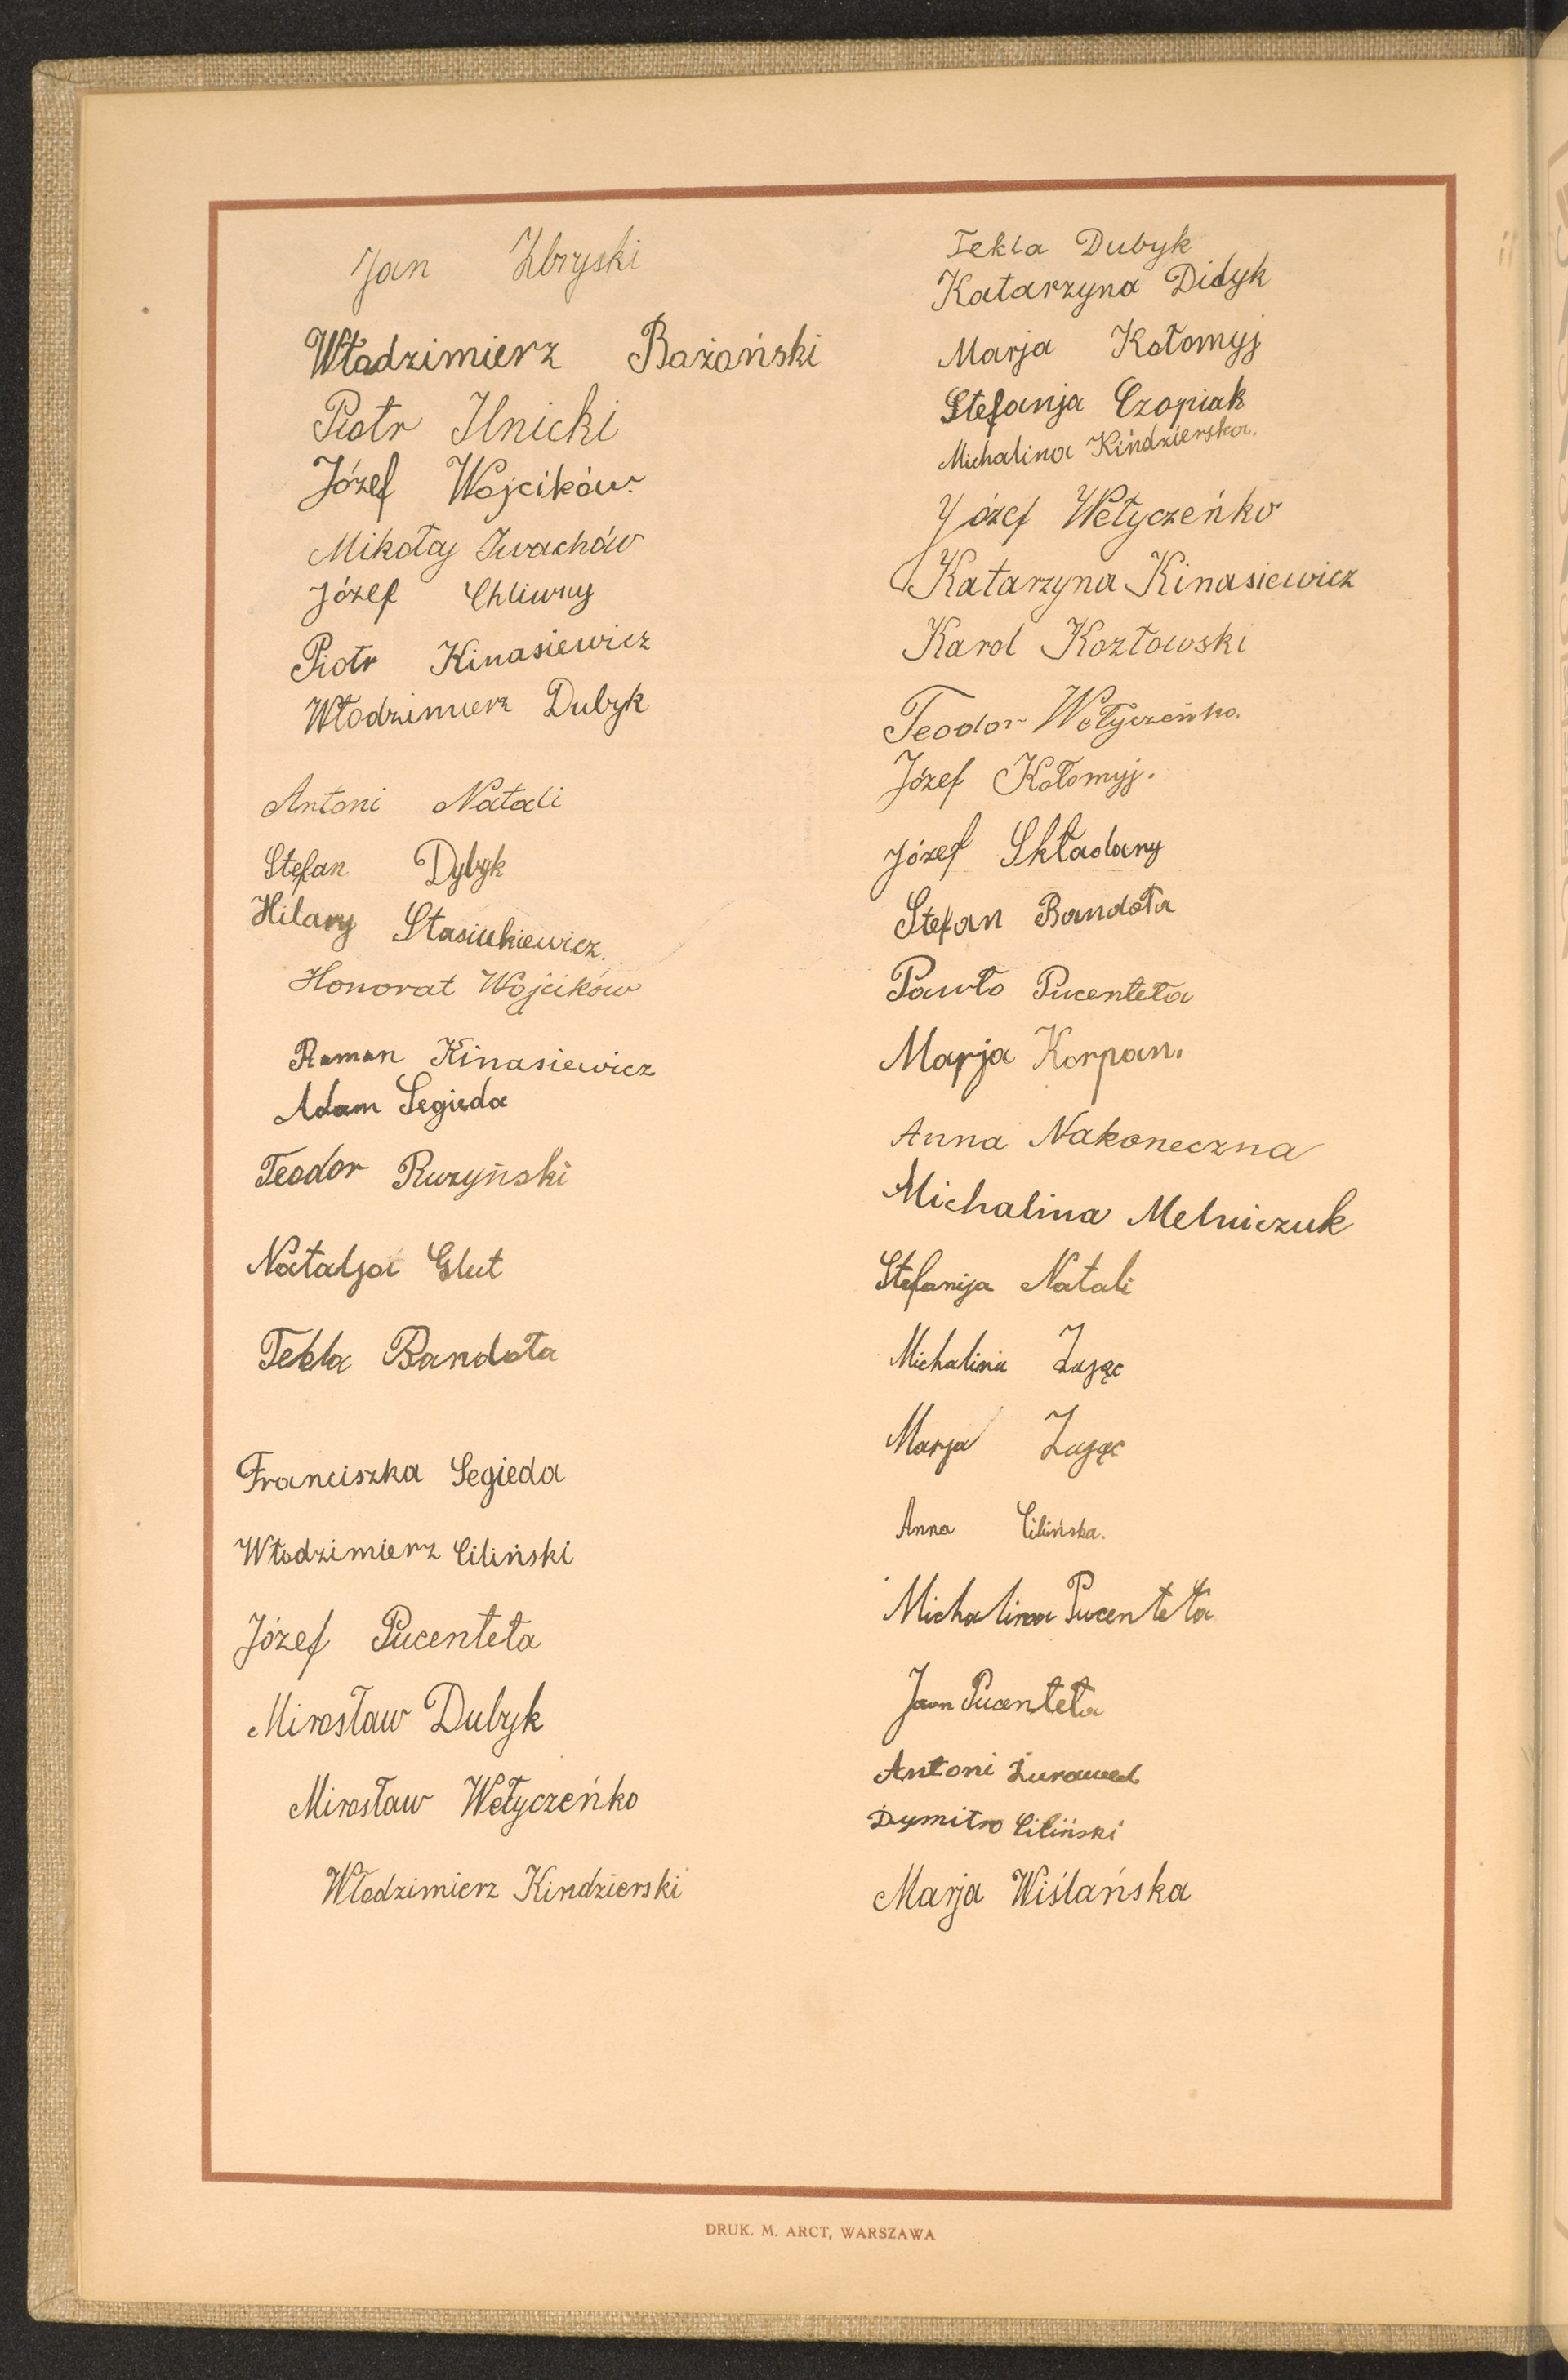 Jan Zbryski
Włodzimierz Bażański
Piotr Ilnicki
Józef Wojcików.
Mikołaj Iwachów
Józef Chliwny
Piotr Kinasiewicz
Włodzimierz Dubyk
Antoni Natali
Stefan Dybyk
Hilary Stasiukiewicz.
Honorat Wojcików
Roman Kinasiewicz
Adam Segieda
Teodor Ruzyński
Natalja Glut
Tekla Bandoła
Franciszka Segieda
Włodzimierz Ciliński
Józef Pucenteła
Mirosław Dubyk
Mirosław Wełyczeńko
Włodzimierz Kindzierski
Tekla Dubyk
Katarzyna Didyk
Marja Kołomyj
Stefanja Czopiak
Michalina Kindzierska.
Józef Wełyczeńko
Katarzyna Kinasiewicz
Karol Kozłowski
Teodor Wełyczeńko.
Józef Kołomyj.
Józef Składany
Stefan Bandoła
Pawło Pucenteła
Marja Korpan.
Anna Nakoneczna
Michalina Melniczuk
Stefanija Natali
Michalina Zając
Marja Zając
Anna Cilińska.
Michalina Pucenteła
Jan Pucenteła
Antoni
Dymitro Ciliński
Marja Wiślańska
DRUK. M. ARCT, WARSZAWA